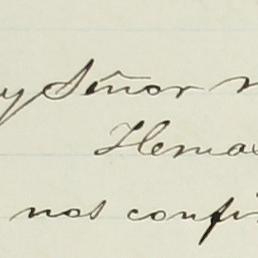 y Señor
Hemos
nos confi